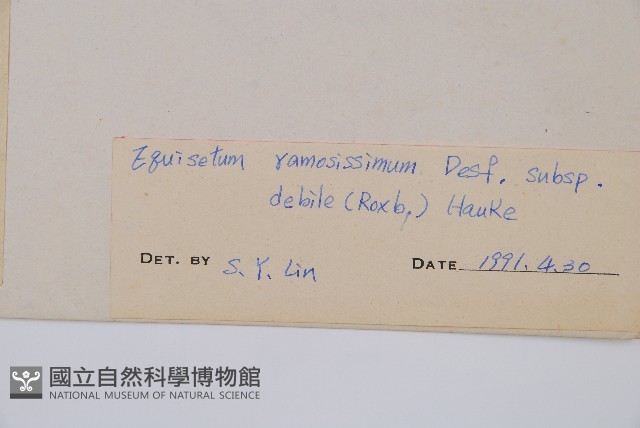 Equisetum ramosissimum Desf. subsp.
debile (Roxb.) Hauke
DET. BY S. Y. Lin
DATE 1991. 4. 30
國立自然科學博物館
NATIONAL MUSEUM OF NATURAL SCIENCE